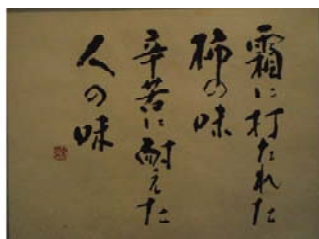 霜に打たれた
柿の味
辛苦に耐えた
人の味